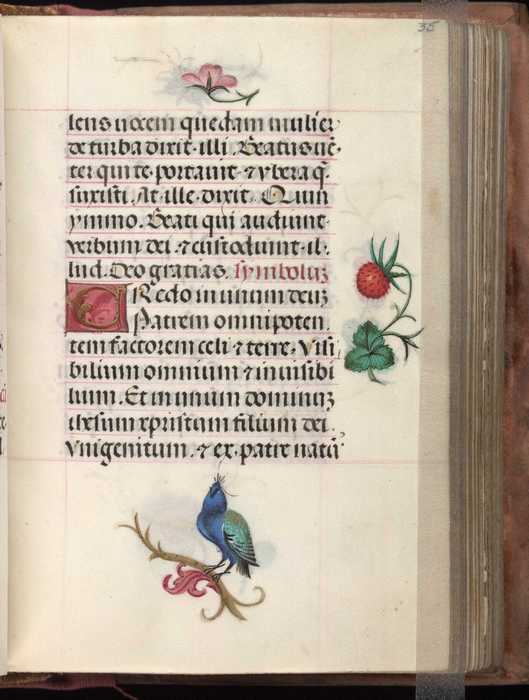 35
lens uocem quedam mulier
de turba dixit · illi. Beatus uē-
ter qui te · portauit · ⁊ vbera q̄
suxisti. At · ille · dixit. Quin
ymmo. Beati qui audiunt ·
verbum dei · ⁊ custodiunt · il-
lud. Deo gratias. Symboluʒ
CRedo in unum deuʒ
Patrem omnipoten
tem factorem celi ⁊ terre, Visi
bilium omnium ⁊ inuisibi
lium. Et in unum dominuʒ
ihesum xpristum filium dei.
Vnigenitum. ⁊ ex · patre natū